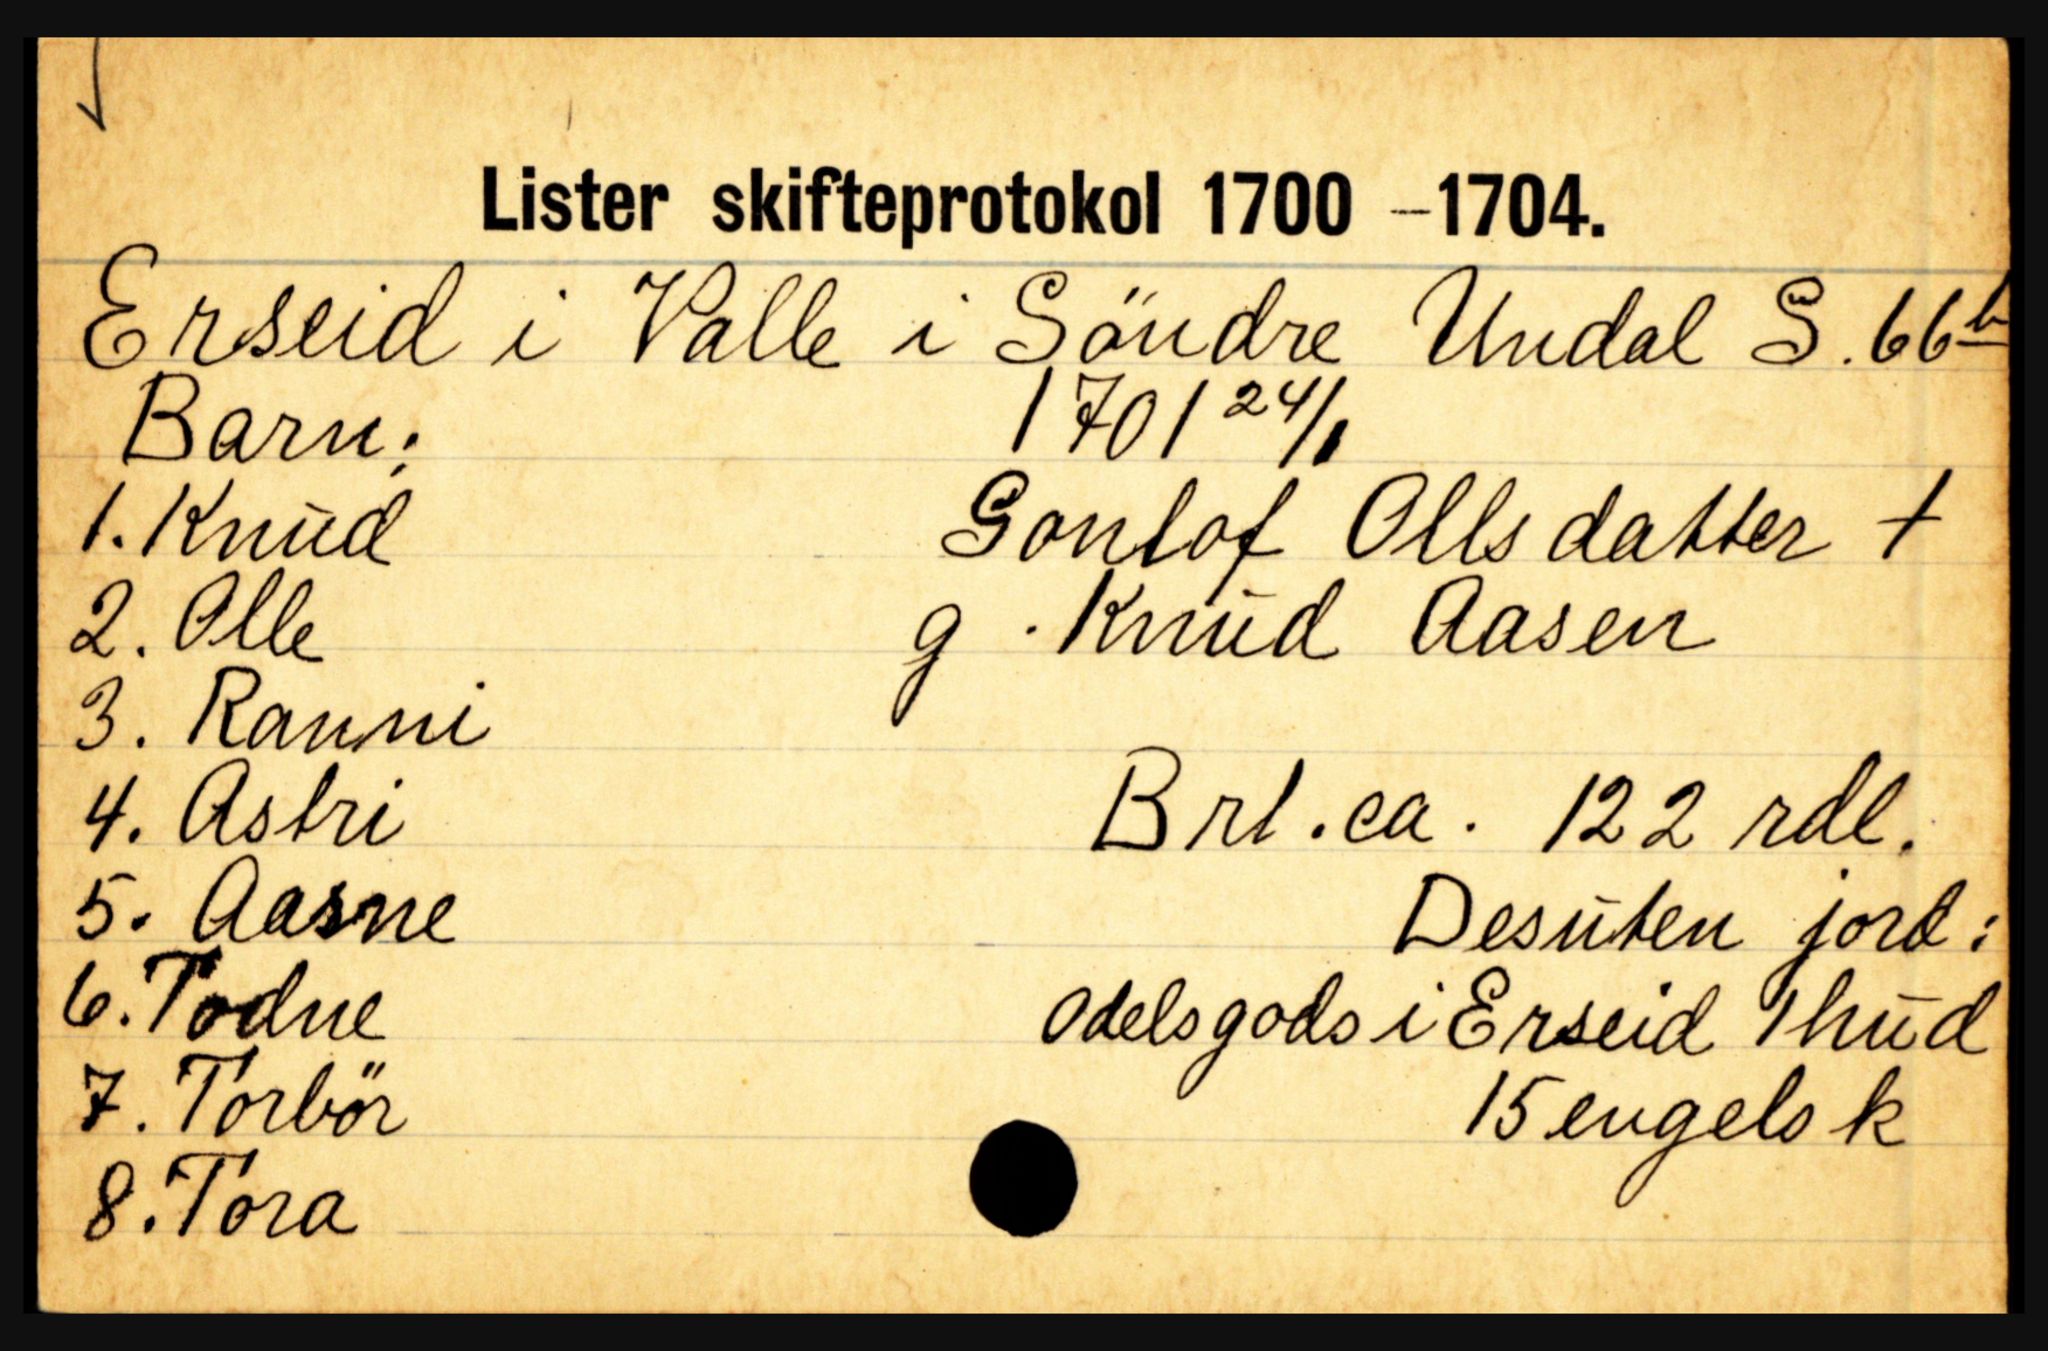 Lister skifteprotokol 1700 – 1704.
Erseid i Valle i Söndre Undal S. 66b
Barn: 1701 24/1
1. Knud Gonlof Ollsdatter +
2. Olle g. Knud Aasen
3. Ranni
4. Astri Brt. ca. 122 rdl.
5. Aasne Desuten jord:
6. Todne Odelsgods i Erseid 1 hud
7. Torbör 15 engelsk
8. Tora